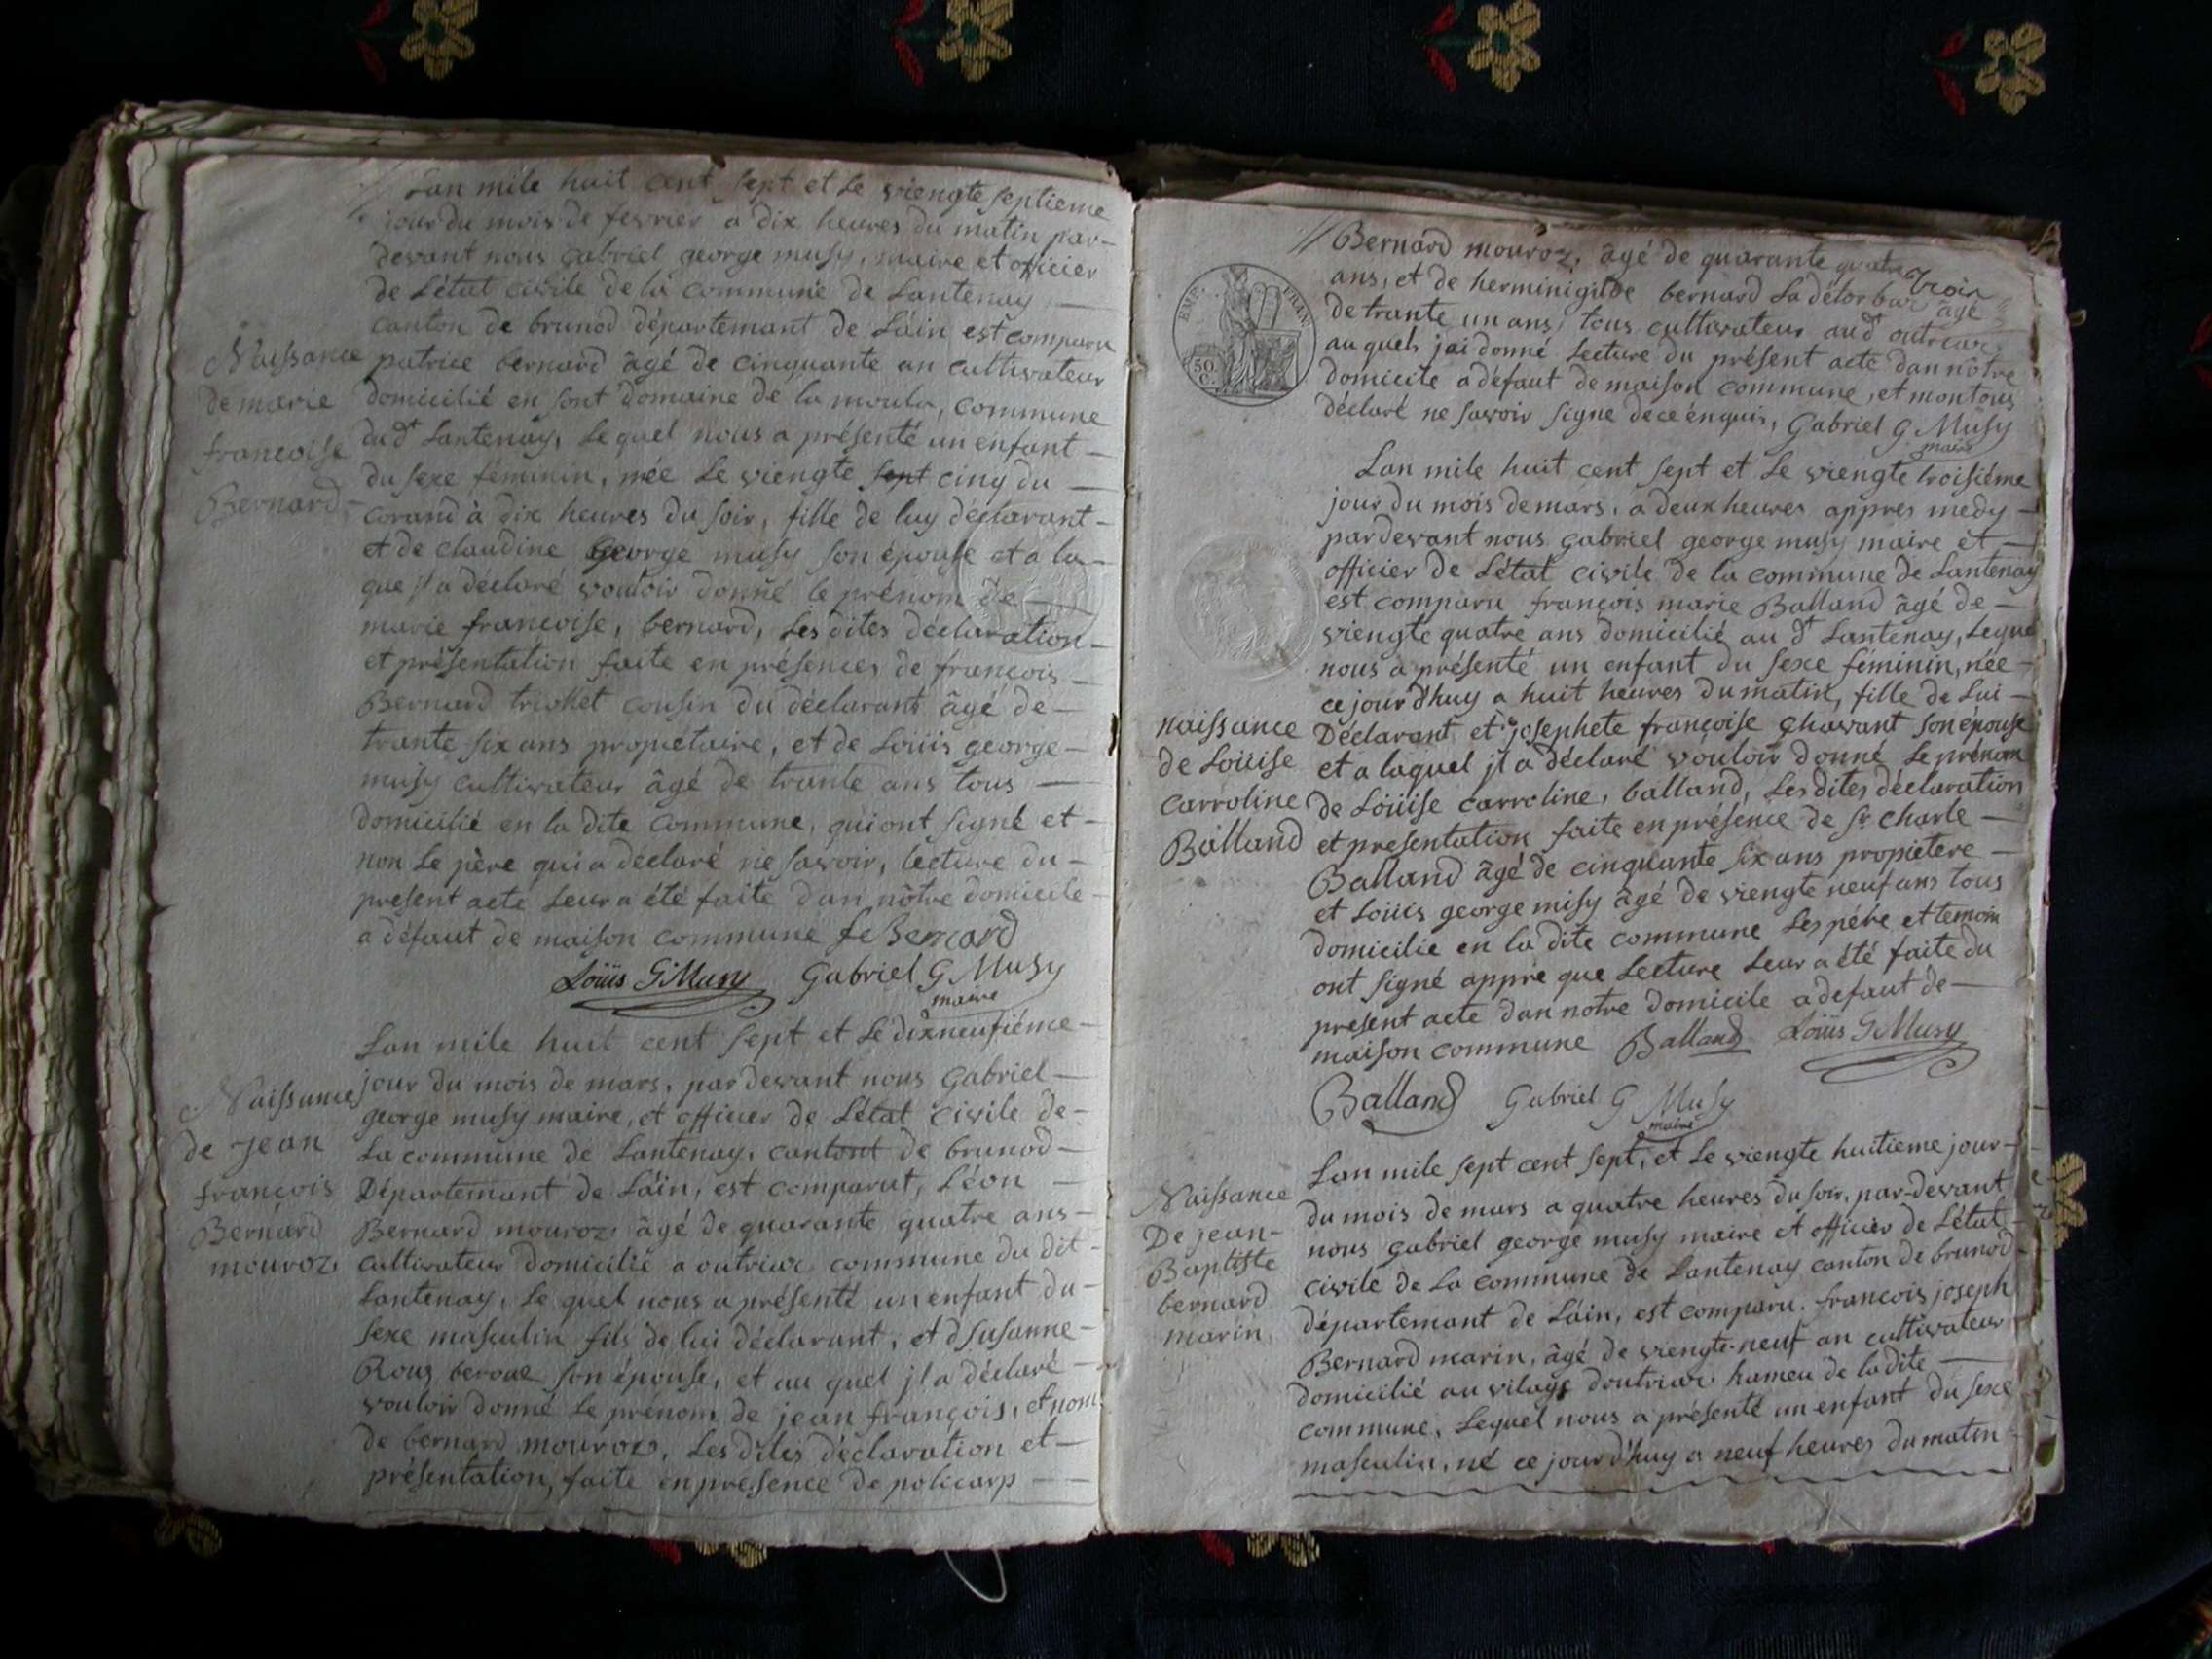 Lan mile huit cent sept et Le viengte septieme
jour du mois de fevrier a dix heures du matin par-
devant nous gabriel george musy, maire et officier
de Létat civile de la commune de Lantenay
canton de brunod département de Láin est comparu
Naissance
de marie
francoise
Bernard
patrice bernard âgé de cinquante an cultivateur
domicilié en sont domaine de la moula, commune
du dt Lantenay, Le quel nous a présenté un enfant
du sexe féminin, née Le viengte sept cinq du
corand à dix heures du soir, fille de luy déclarant
et de claudine george musy son épouse et a la
que jl a déclaré vouloir donné le prénom de
marie francoise, bernard, Les dites déclaration
et présentation faite en présences de françois
Bernard trioket cousin du déclarant âgé de
trante six ans propiétaire, et de Loüis george
musy cultivateur âgé de trante ans tous
domicilié en la dite commune, qui ont signé et
non Le père qui a déclaré ne savoir, lecture du
present acte Leur a été faite dan nôtre domicile
a défaut de maison commune fe Bernard
Loüis G Musy Gabriel G Musy
maire
Lan mile huit cent sept et Le dixneufiéme
Naissance
de jean
françois
Bernard
mouroz
jour du mois de mars, par devant nous Gabriel
george musy maire, et officier de Létat civile de
La commune de Lantenay, cantont de brunod
Département de Láin, est comparut, Léon
Bernard mouroz âgé de quarante quatre ans
cultivateur domicilié a outriaz commune du dit
Lantenay, Le quel nous a présenté un enfant du
sexe masculin fils de lui déclarant, et d susanne
Rous beroue son épouse, et au quel jl a déclaré
vouloir donné Le prénom de jean françois, et nom
de bernard mouroz, Les dites déclaration et
présentation, faite en presence de policarp
Bernard mouroz, âgé de quarante quatre troix
ans, et de herminigilde bernard La détorbar âgé
de trante un ans, tous cultivateur aud outriaz
au quels jai donné Lecture du présent acte dan nôtre
domicile a défaut de maison commune, et mon tous
déclaré ne savoir signe de ce énquis, Gabriel G Musy
maire
EMP. FRAN.
50
C.
Lan mile huit cent sept et Le viengte troisiéme
jour du mois de mars, a deux heures appres medy
par devant nous gabriel george musy maire et
officier de Létat civile de la commune de Lantenay
est comparu françois marie Balland âgé de
viengte quatre ans domicilié au dt Lantenay, Lequel
nous a présenté un enfant du sexe féminin, née
ce jour d'huy a huit heures du matin, fille de Lui
naissance
de Loüise
carroline
Balland
Déclarant et josephete françoise chavant son épouse
et a laquel jl a déclaré vouloir donné Le prénom
de Loüise carroline, balland, Les dites déclaration
et presentation faite en présence de sr charle
Balland âgé de cinquante six ans propietere
et Loüis george misy âgé de viengte neuf ans tous
domicilie en la dite commune Les pére et temoin
ont signé appre que Lecture Leur a été faite du
present acte dan notre domicile a defaut de
maison commune Balland Loüis G Musy
Balland Gabriel G Musy
maire
Lan mile sept cent sept, et Le viengte huitieme jour
Naissance
De jean-
Baptiste
bernard
marin
du mois de mars a quatre heures du soir, par-devant
nous gabriel george musy maire et officier de Létat
civile de La commune de Lantenay canton de brunod
département de Láin, est comparu. francois joseph
Bernard marin, âgé de viengte-neuf an cultivateur
domicilié au vilage doutriaz hameu de la dite
commune, Lequel nous a présenté un enfant du sexe
masculin, né ce jour d'huy a neuf heures du matin